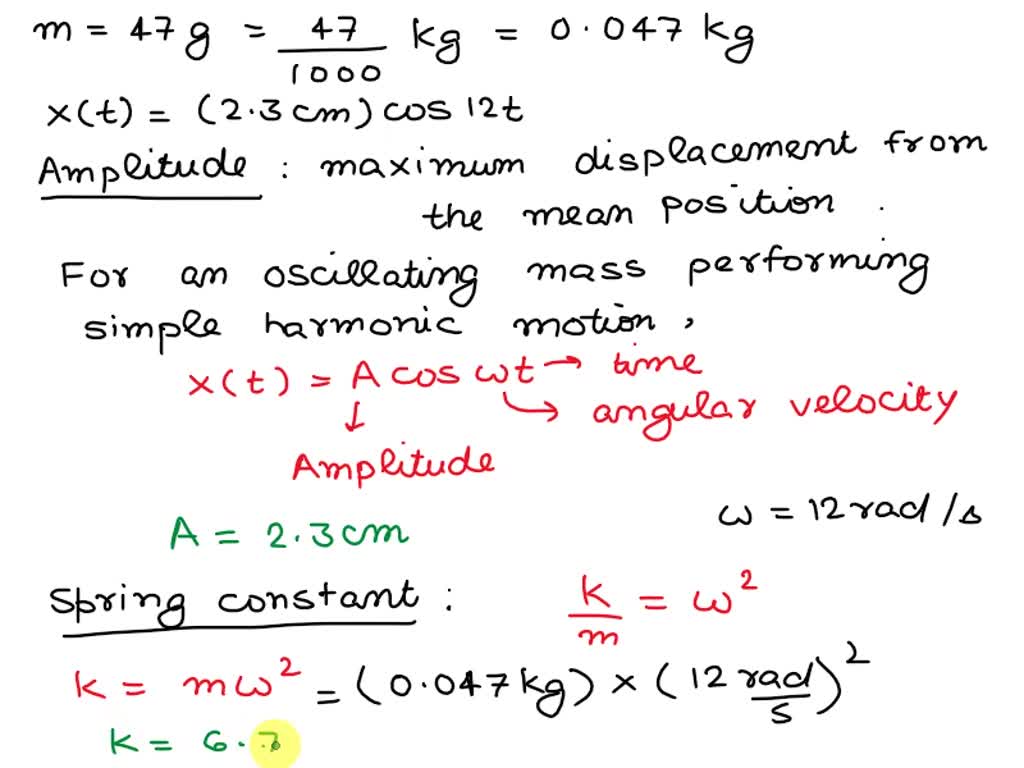 m = 47g = 47/1000 kg = 0.047 kg
x(t) = (2.3 cm) cos 12t
Amplitude : maximum displacement from
the mean position .
For an oscillating mass performing
simple harmonic motion,
x(t) = A cos ωt → time
↓ ↳ angular velocity
Amplitude
A = 2.3 cm
ω = 12 rad/s
Spring constant : k/m = ω²
k = mω² = (0.047 kg) × (12 rad/s)²
k = 6.7